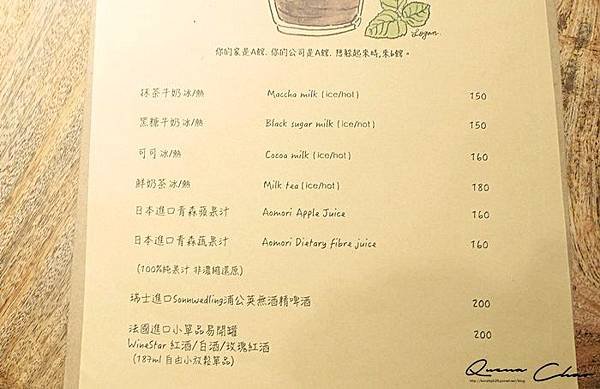 Logan.
你的家是A館. 你的公司是A館. 想躲起來時,來b館。
抹茶牛奶冰/熱 Maccha milk (ice/hot) 150
黑糖牛奶冰/熱 Black sugar milk (ice/hot) 150
可可冰/熱 Cocoa milk (ice/hot) 160
鮮奶茶冰/熱 Milk tea (ice/hot) 180
日本進口青森蘋果汁 Aomori Apple Juice 160
日本進口青森蔬果汁 Aomori Dietary fibre juice 160
(100%純果汁 非濃縮還原)
瑞士進口Sonnwedling蒲公英無酒精啤酒 200
法國進口小單品易開罐 200
WineStar 紅酒/白酒/玫瑰紅酒
(187ml 自由小放鬆單品)
Quena Chao